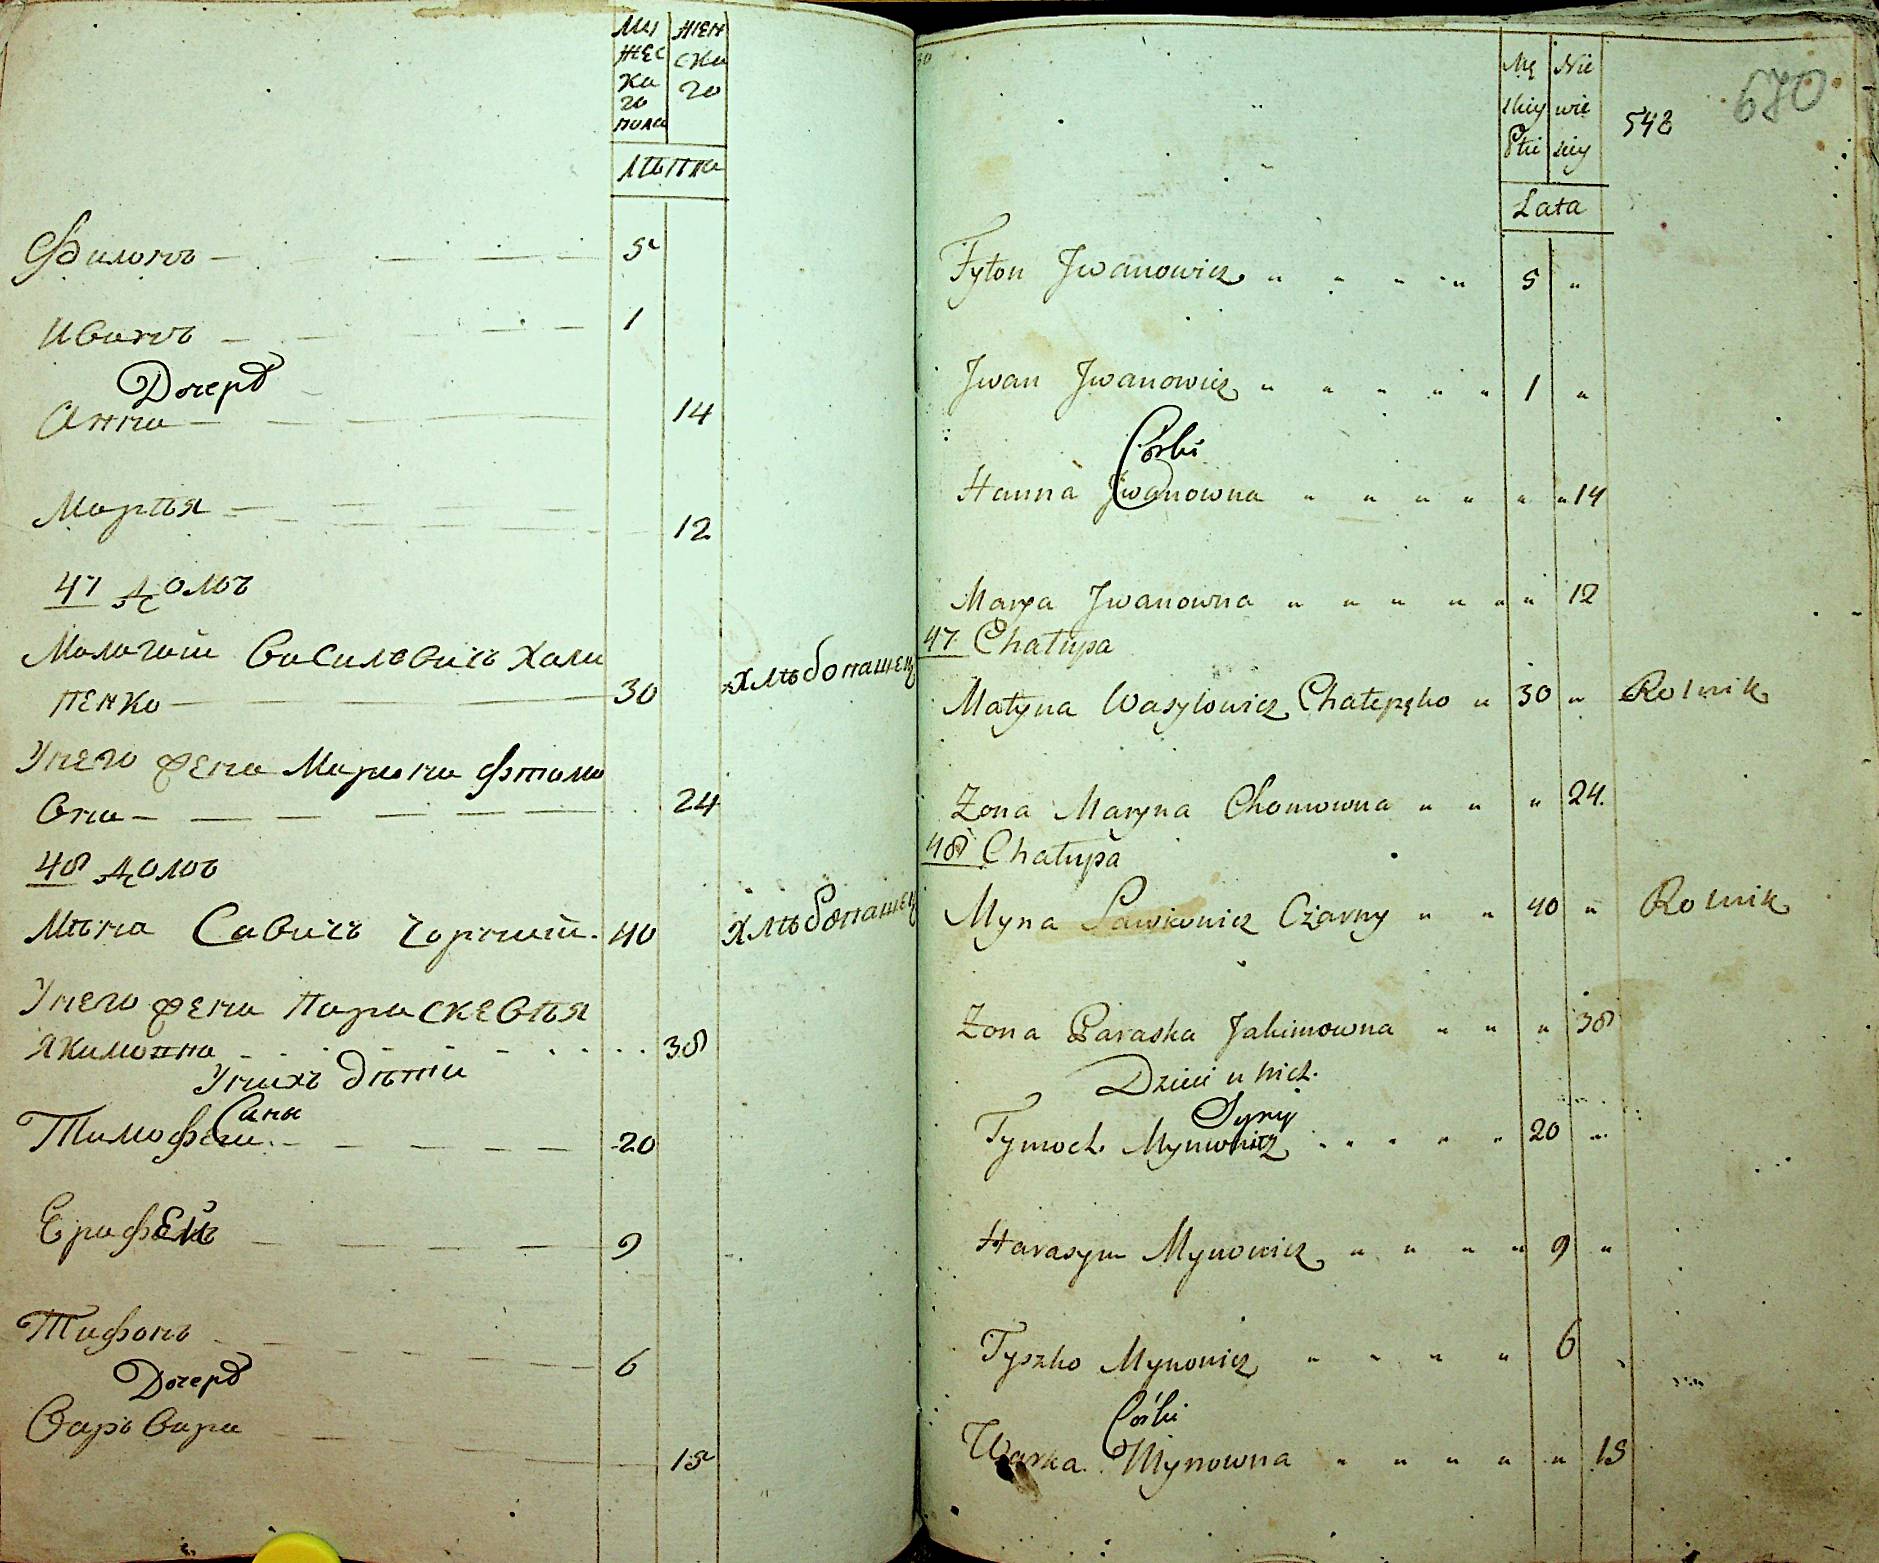 Му
жес
ка
го
пола
жен
ска
го
лѣта
Филонъ 5
Иванъ 1
Дочерѣ
Анна 14
Марѣя 12
47 домъ
Малагай Василевичъ Хали
пенко 30 хлѣбопашец
Унего жена Марина Фтомо
вна 24
48 домъ
Мѣна Савичъ Чорний 40 хлѣбопашец
Унего жена Параскевѣя
Якимовна 38
Унихъ дѣти
Сины
Тимофей 20
Ерофей 9
Тифонъ 6
Дочерѣ
Варъвара 15
Mę
skiey
Płci
Nie
wie
sciey
Lata
542
670
Fyłon Jwanowicz " " " " 5 "
Jwan Jwanowicz " " " " " 1 "
Córki
Hanna Jwanowna " " " " " " 14
Marya Jwanowna " " " " " " 12
47 Chałupa
Małyna Wasylowicz Chalepęko " 30 " Rolnik
Zona Maryna Chomowna " " " 24
48 Chałupa
Myna Sawkowicz Czarny " " 40 " Rolnik
Zona Paraska Jakimowna " " " 38
Dzieci u nich
Syny
Tymoch Mynowicz " " " " 20 "
Harasym Mynowicz " " " " 9 "
Tyszko Mynowicz " " " " 6
Córki
Warka Mynowna " " " " " 15